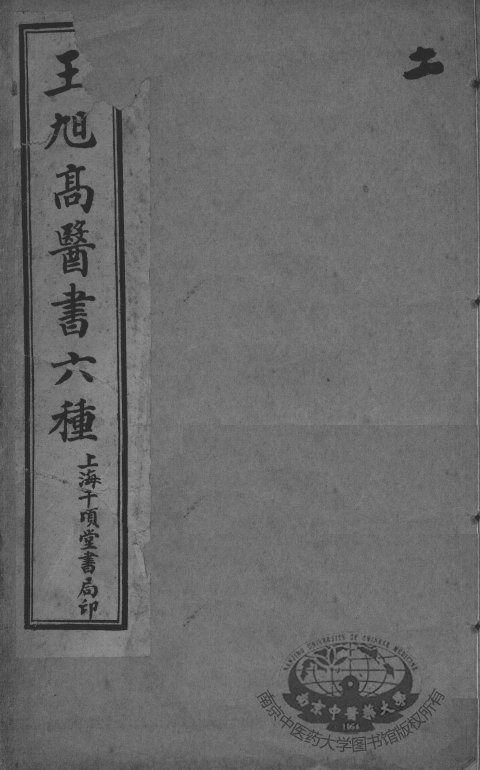 王旭高醫書六種
上海千頃堂書局印
土
NANJING UNIVERSITY OF CHINESE MEDICINE
南京中醫藥大學
1954
南京中医药大学图书馆版权所有